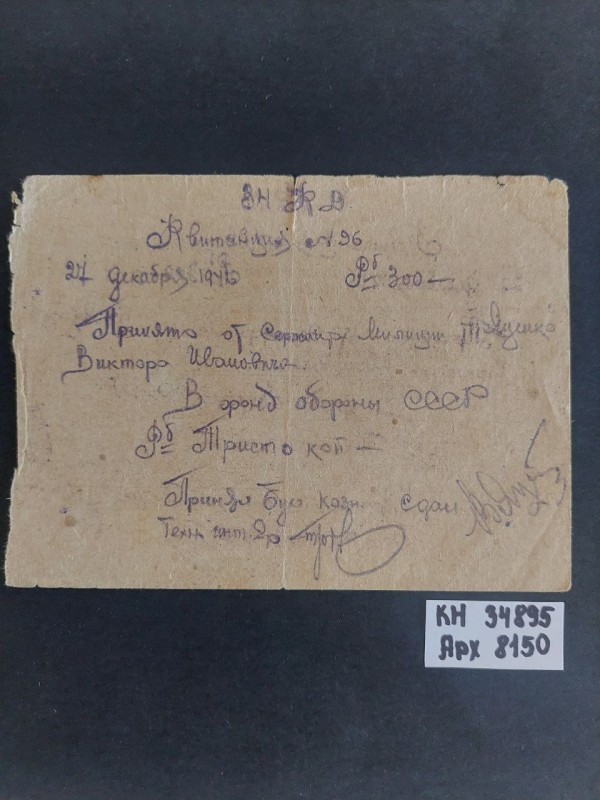 Квитанция №96
27 декабря 194
Рб 300 —
Принято от Сержанта Милиции
Виктора Ивановича.
В фонд обороны СССР
Рб Тристо коп —
Принял Бух. Казн. Сдал
Техн. инт. 2р
КН 34895
Арх 8150